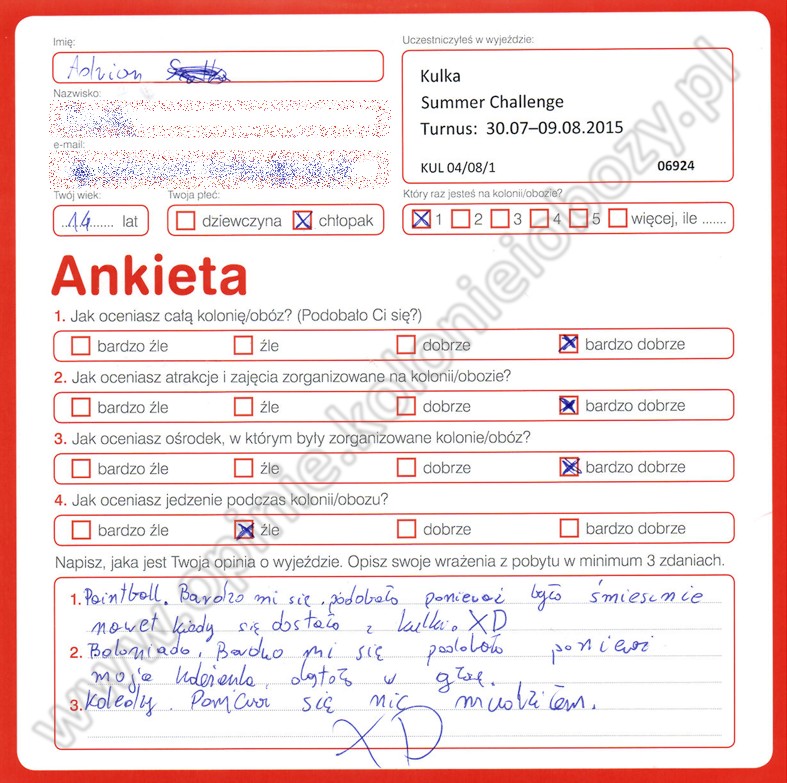 Imię:
Adrian
Nazwisko:
e-mail:
Twój wiek:
14 lat
Twoja płeć:
dziewczyna chłopak
Uczestniczyłeś w wyjeździe:
Kulka
Summer Challenge
Turnus: 30.07–09.08.2015
KUL 04/08/1 06924
Który raz jesteś na kolonii/obozie?
1 2 3 4 5 więcej, ile .......
Ankieta
1. Jak oceniasz całą kolonię/obóz? (Podobało Ci się?)
bardzo źle źle dobrze bardzo dobrze
2. Jak oceniasz atrakcje i zajęcia zorganizowane na kolonii/obozie?
bardzo źle źle dobrze bardzo dobrze
3. Jak oceniasz ośrodek, w którym były zorganizowane kolonie/obóz?
bardzo źle źle dobrze bardzo dobrze
4. Jak oceniasz jedzenie podczas kolonii/obozu?
bardzo źle źle dobrze bardzo dobrze
Napisz, jaka jest Twoja opinia o wyjeździe. Opisz swoje wrażenia z pobytu w minimum 3 zdaniach.
1. Paintball. Bardzo mi się podobało ponieważ było śmiesznie
nawet kiedy się dostało z kulki. XD
2. Bardzo mi się podobało
moje w
3. Koledzy. się nie
XD
www.opinie.kolonieiobozy.pl